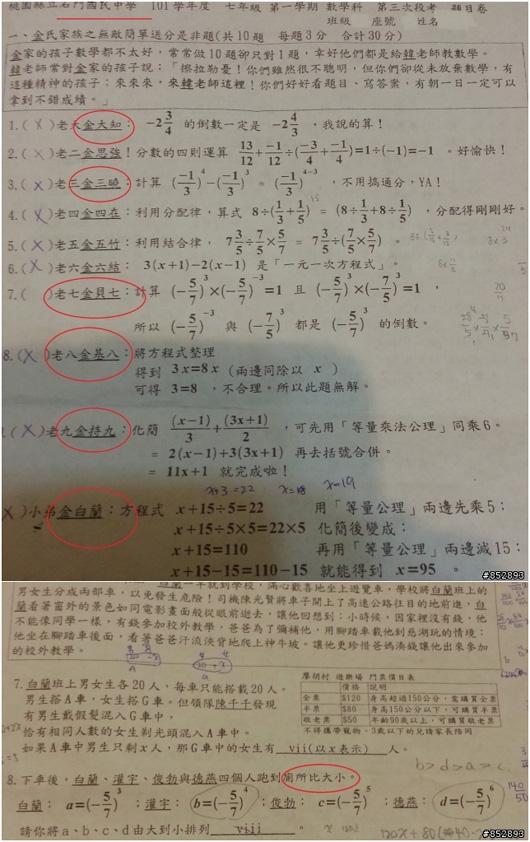 桃園縣立石門國民中學 101學年度 七年級 第一學期 數學科 第三次段考 題目卷
班級 座號 姓名
一、金氏家族之無敵簡單送分是非題(共10題 每題3分 合計30分)
金家的孩子數學都不太好，常常做10題卻只對1題，幸好他們都是給韓老師教數學。
韓老師常對金家的孩子說：「撒拉勒憂！你們雖然很不聰明，但你們卻從未放棄數學，有
這種精神的孩子：來來來，來韓老師這裡！你們好好看題目、寫答案，有朝一日一定可以
拿到不錯成績。」
1.(X)老大金大知：-2 3/4 的倒數一定是 -2 4/3 ，我說的算！
2.(X)老二金思強！分數的四則運算 13/12+(-1)/12÷(-3/4+(-1)/4)=1÷(-1)=-1 。好愉快！
3.(X)老三金三曉：計算 ((-1)/3)^4-((-1)/3)^3 = ((-1)/3)^(4-3) ，不用搞通分，YA！
4.(X)老四金四在：利用分配律，算式 8÷(1/3+1/5) = (8÷1/3+8÷1/5) ，分配得剛剛好。
5.(X)老五金五竹：利用結合律，7 3/5÷7/5×5/7 = 7 3/5÷(7/5×5/7) 。
6.(X)老六金六結：3(x+1)-2(x-1) 是「一元一次方程式」。
7.( )老七金貝七：計算 (-5/7)^3×(-5/7)^-3=1 且 (-5/7)^3×(-7/5)^3=1 ，
所以 (-5/7)^-3 與 (-7/5)^3 都是 (-5/7)^3 的倒數。
8.(X)老八金基八：將方程式整理
得到 3x=8x (兩邊同除以 x )
可得 3=8 ，不合理。所以此題無解。
(X)老九金持九：化簡 (x-1)/3+(3x+1)/2 ，可先用「等量乘法公理」同乘6。
= 2(x-1)+3(3x+1) 再去括號合併。
= 11x+1 就完成啦！
x+3=22 x=19
(X)小弟金白蘭：方程式 x+15÷5=22 用「等量公理」兩邊先乘5：
x+15÷5×5=22×5 化簡後變成：
x+15=110 再用「等量公理」兩邊減15：
x+15-15=110-15 就能得到 x=95 。
#852893
男女生分成兩部車，以免發生危險！司機陳光賢將車子開上了高速公路往目的地前進，白
蘭看著窗外的景色如同電影畫面般從眼前逝去，讓他回想到：小時候，因家裡沒有錢，他
不能像同學一樣，有錢參加校外教學，爸爸為了彌補他，用腳踏車載他到慈湖玩的情境：
他坐在腳踏車後面，看著爸爸汗流浹背地爬上神牛坡。讓他更珍惜爸媽湊錢讓他出來參加
的校外教學。
7.白蘭班上男女生各20人，每車只能搭載20人。
男生搭A車，女生搭G車。但領隊陳千千發現
有男生戴假髮混入G車中，
恰有相同人數的女生剃光頭混入A車中。
如果A車中男生只剩x人，那G車中的女生有 vii(以x表示) 人。
摩胡村 遊樂場 門票價目表
價格 說明
全票 $120 身高超過150公分，需購買全票
半票 $80 身高150公分以下，可購買半票
敬老票 $50 年齡90歲以上，可購買敬老票
不得攜帶寵物、3歲以下的兒童請家長陪同
b>d>a>c
8.下車後，白蘭、灌宇、俊勃與德燕四個人跑到廁所比大小。
白蘭：a=(-5/7)^3；灌宇：b=(-5/7)^4；俊勃：c=(-5/7)^5；德燕：d=(-5/7)^6
請你將a、b、c、d由大到小排列 viii 。
#852893